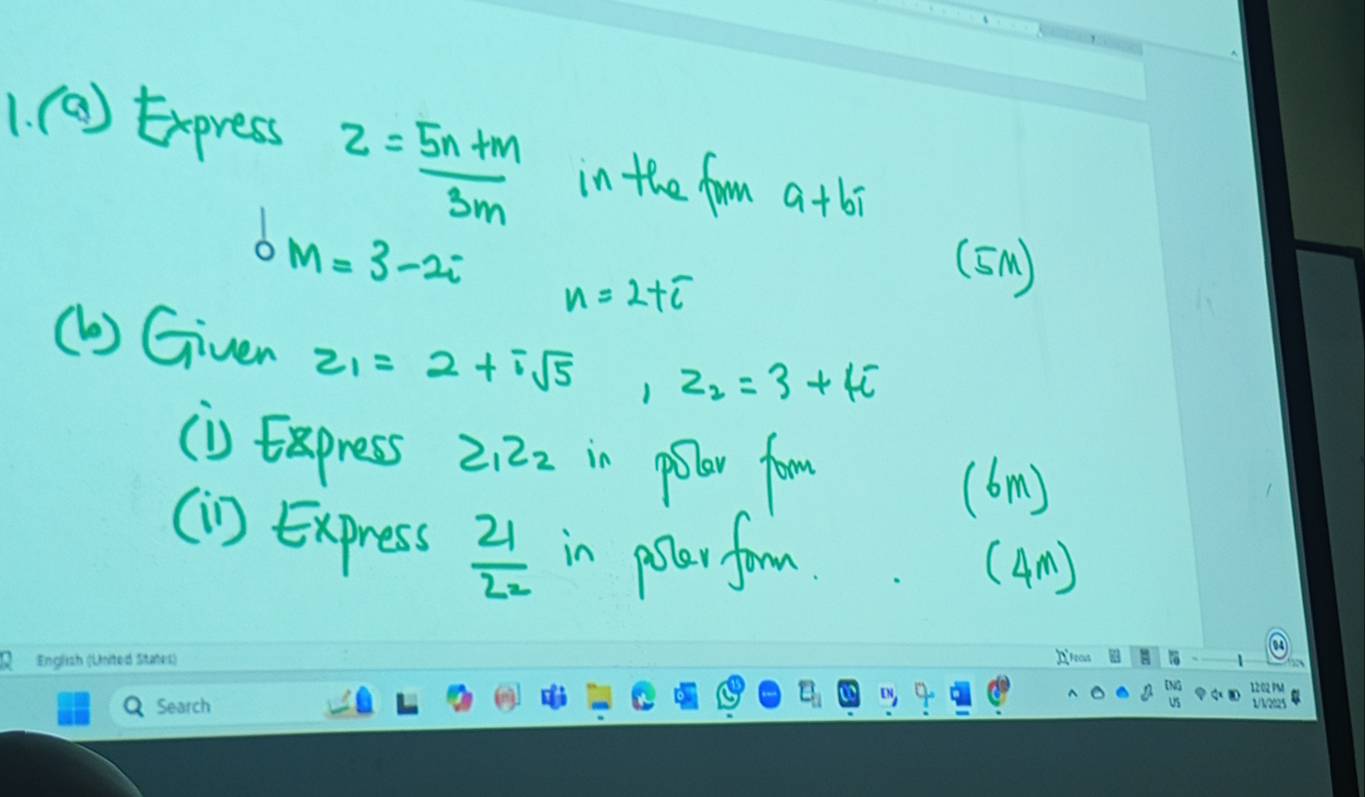 1.(a) Express z = (5n+m)/(3m) in the form a+bi
m = 3-2i n = 2+i (5M)
(b) Given z₁ = 2 + i√5 , z₂ = 3 + 4i
(i) Express z₁z₂ in polar form (6m)
(ii) Express z₁/z₂ in polar form. . (4m)
English (United States) Focus
Search ENG US 12:02 PM 1/1/2025